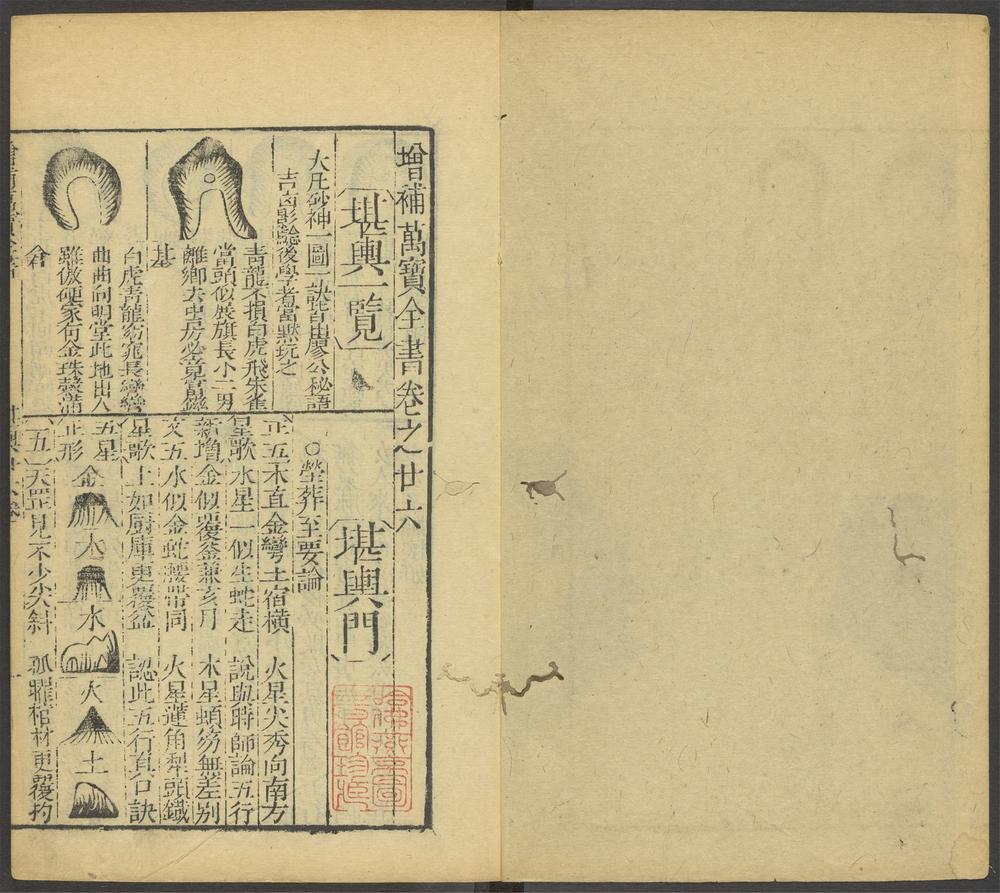 增補萬寶全書卷之廿六
堪輿一覽
大凡砂神一圖一訣皆出廖公秘語
吉凶影驗後學者當默玩之
青龍不損白虎飛朱雀
當頭似展旗長小二男
離鄉去中房必竟富鎡
基
白虎青龍窈窕長彎彎
曲曲向明堂此地出人
雖傲硬家有金珠穀滿
倉
堪輿門
○塋葬至要論
正五 木直金彎土宿橫 火星尖秀向南方
星歌 水星一似生蛇走 說與時師論五行
新增 金似覆釜兼亥月 木星蝢笏無差別
文五 水似金蛇瀴帶同 火星蓮角犁頭鐵
星歌 土如廚庫更覆盆 認此五行真口訣
五星 正形 金 木 水 火 土
五 天罡見不少尖斜 孤曜棺材更覆杓
哈佛燕京圖書館珍藏